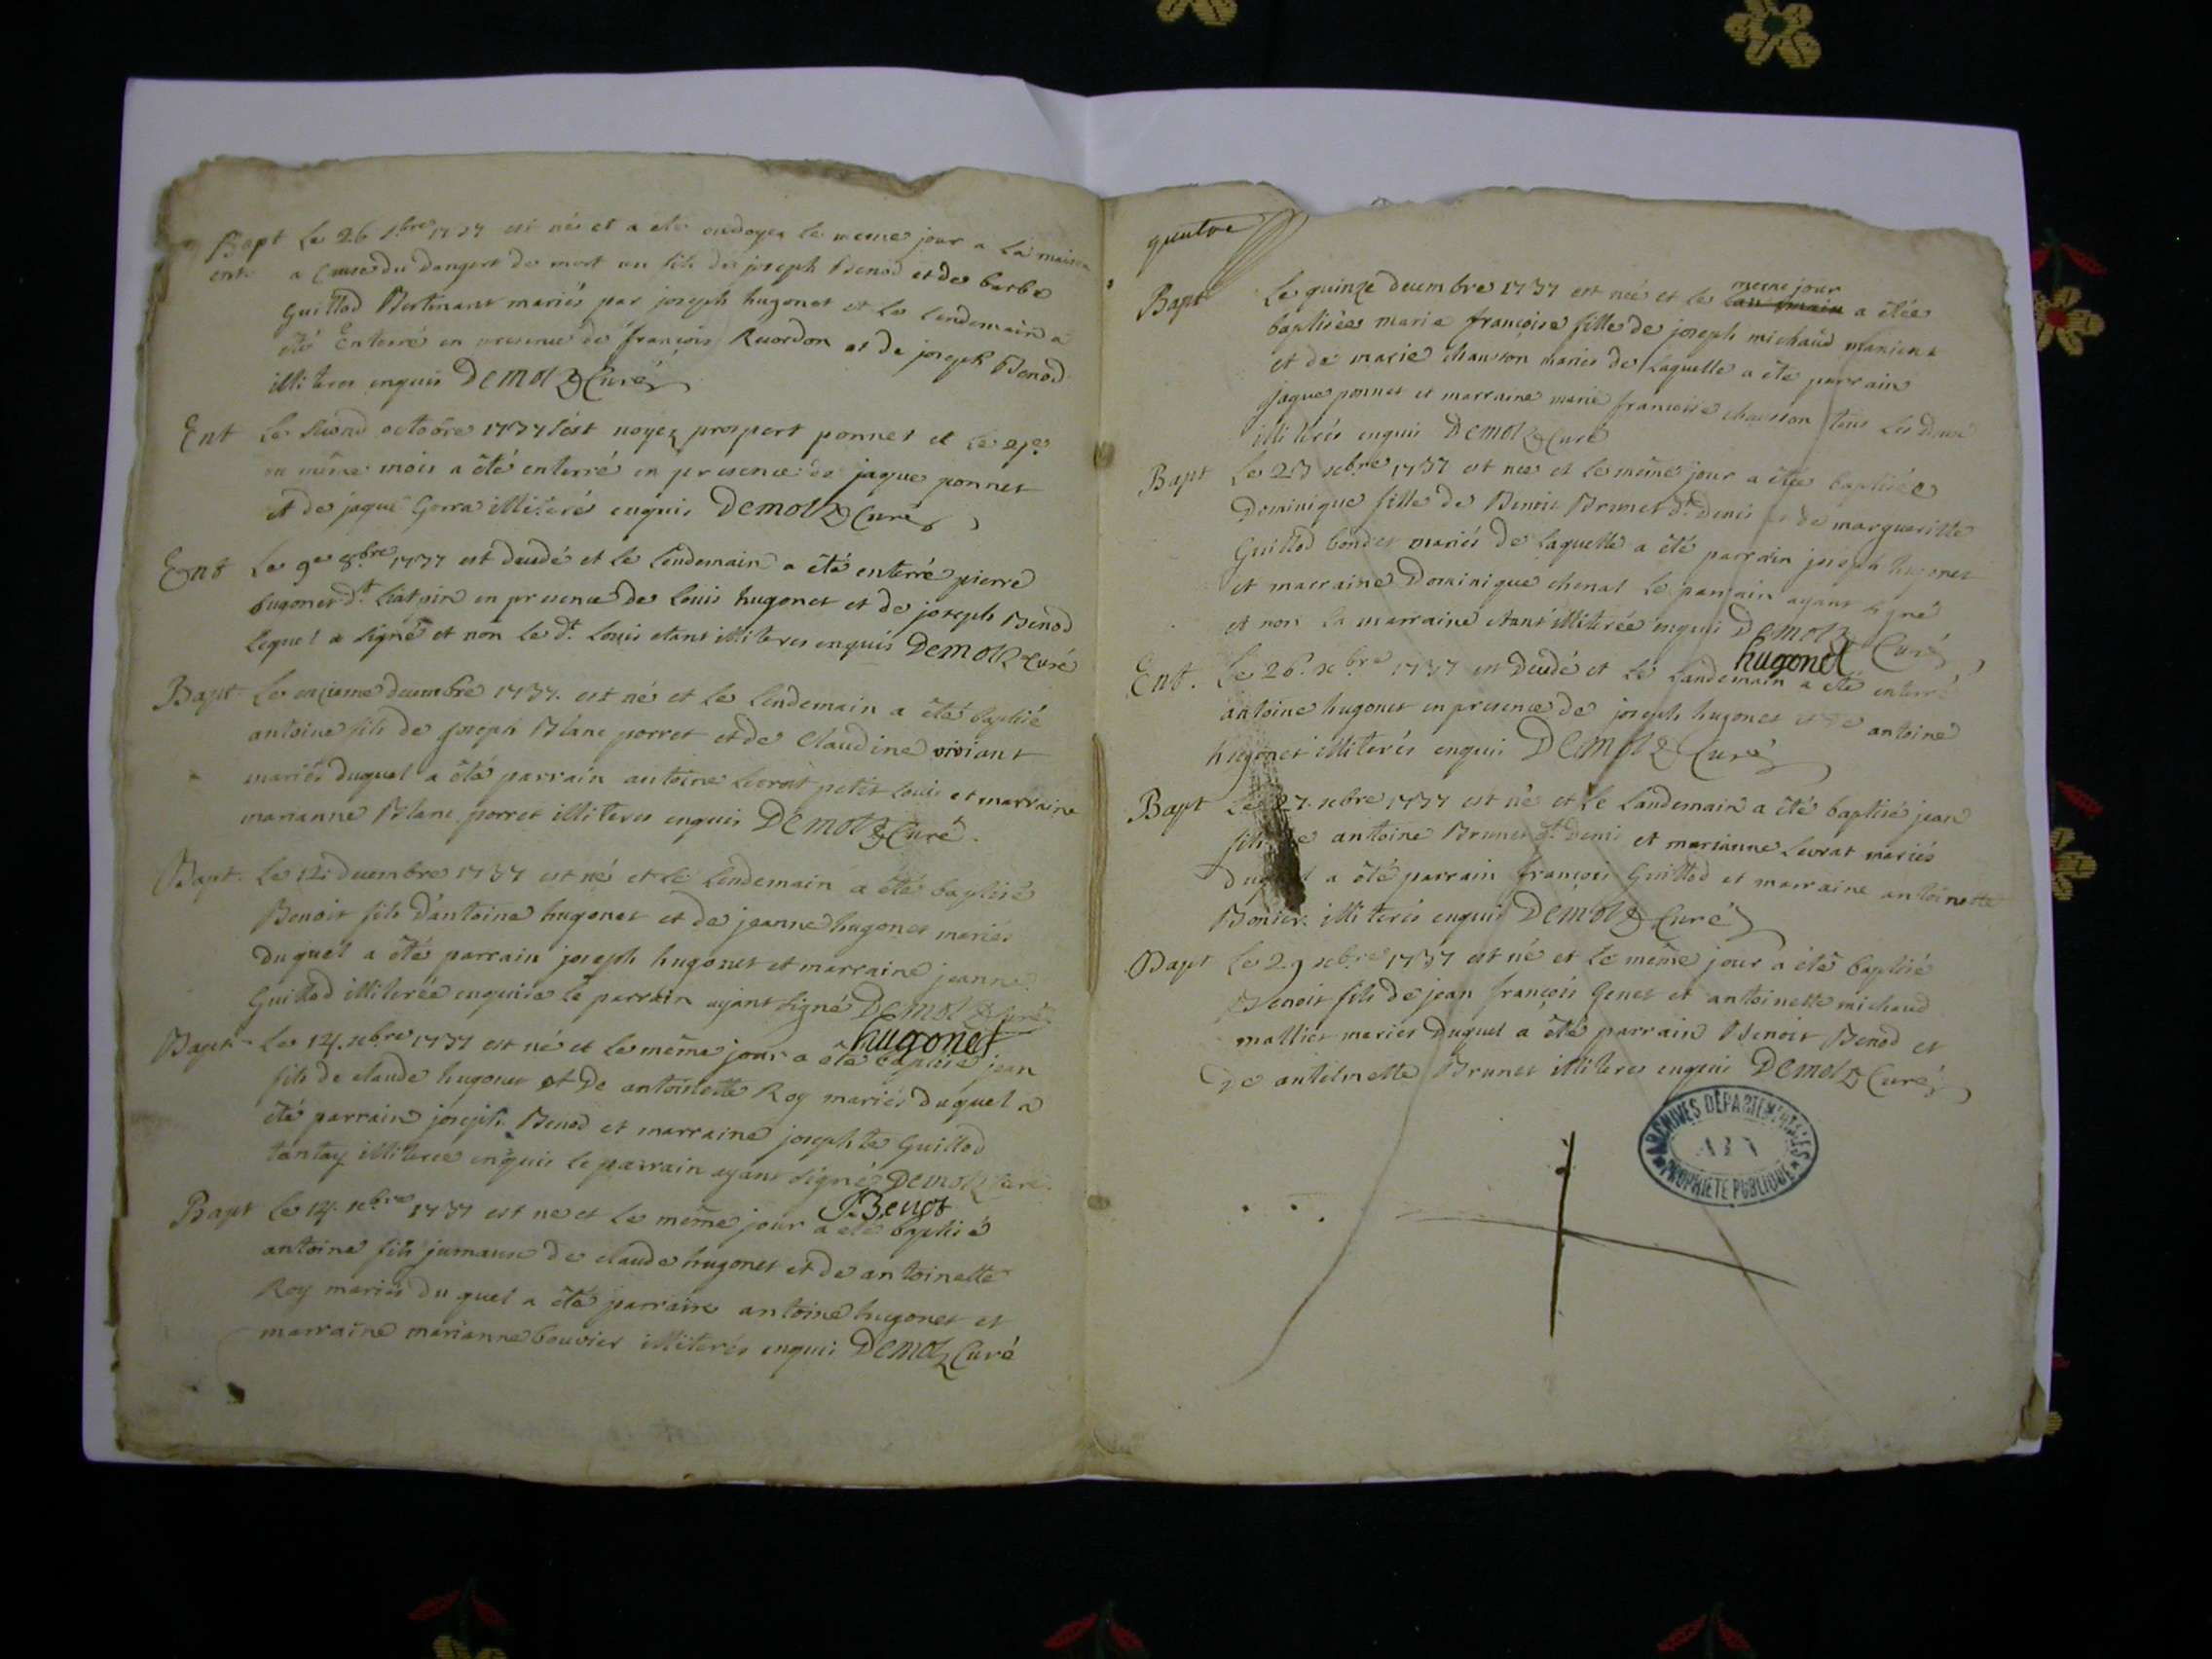 Bapt Le 26 7bre 1737 est né et a eté ondoyez le meme jour a la maison
ent. a Cause du dangert de mort un fils de joseph Benod et de barbe
Guillod Bertinant mariés par joseph hugonet et le lendemain a
été Enterré en presence de françois Ruordon et de joseph Benod
illiteres enquis Demolz Curé
Ent Le second octobre 1737 s'est noyez prospert ponnet et le
du même mois a êté enterré en presence de jaque ponnet
et de jaque Gorra illiteré enquis Demolz Curé
Ent Le 9e 8bre 1737 est decedé et le lendemain a êté enterré pierre
hugonet dt en presence de louis hugonet et de joseph Benod
lequel a signé et non le dt. louis etant illiteres enquis Demolz Curé
Bapt Le onzieme decembre 1737. est né et le lendemain a êté baptisé
antoine fils de joseph Blanc porret et de Claudine viviant
mariés duquel a êté parrain antoine levrat petit louis et marraine
marianne Blanc porret illiteres enquis Demolz Curé.
Bapt. Le 12. decembre 1737 est né et le lendemain a êté baptisé
Benoit fils d'antoine hugonet et de jeanne hugonet mariés
duquel a êté parrain joseph hugonet et marraine jeanne
Guillod illiterée enquise le parrain ayant signé Demolz Curé
hugonet
Bapt Le 14. xbre 1737 est né et le même jour a êté baptisé jean
fils de claude hugonet et De antoinette Roy mariés duquel a
êté parrain joseph Benod et marraine josephte Guillod
tantay illiterée enquis le parrain ayant signé Demolz Curé.
J Benot
Bapt Le 14. xbre 1737 est ne et le même jour a eté baptisé
antoine fils jumaux de claude hugonet et de antoinette
Roy mariés du quel a êté parrain antoine hugonet et
marraine marianne bouvier illiterés enquis Demolz Curé
quatre
même jour
Bapt Le quinze decembre 1737 est née et le a êtée
baptisée marie françoise fille de joseph michaud manient
et de marie chanson mariés de laquelle a êté parrain
jaque ponnet et marraine marie françoise chausson tous les deux
illiterés enquis Demolz Curé
Bapt Le 23 xbre 1737 est nee et le même jour a êtée baptisée
Dominique fille de Benoit Brunet dt. Denis et de margueritte
Guillod bondet mariés de laquelle a êté parrain joseph hugonet
et marraine Dominique chenat le parrain ayant signé
et non la marraine etant illiterée enquis Demolz Curé
hugonet
Ent. Le 26. xbre 1737 est decedé et le landemain a êté enterré
antoine hugonet en presence de joseph hugonet et de antoine
hugonet illiterés enquis Demolz Curé
Bapt Le 27. xbre 1737 est né et le landemain a êté baptisé jean
fils de antoine Brunet dt. Denis et marianne Levrat mariés
duquel a êté parrain françois Guillod et marraine antoinette
Bonier illiterés enquis Demolz Curé
Bapt Le 29 xbre 1737 est né et le même jour a êté baptisé
Benoit fils de jean françois Genet et antoinette michaud
malliet mariés duquel a êté parrain Benoit Benod et
de antoinette Brunet illiteres enquis Demolz Curé
ARCHIVES DÉPARTEMENTALES
AIN
PROPRIÉTÉ PUBLIQUE